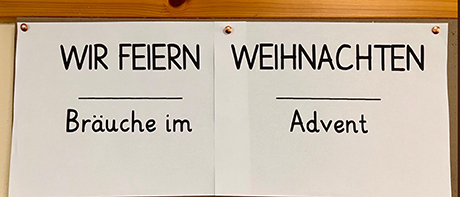 WIR FEIERN WEIHNACHTEN
Bräuche im Advent